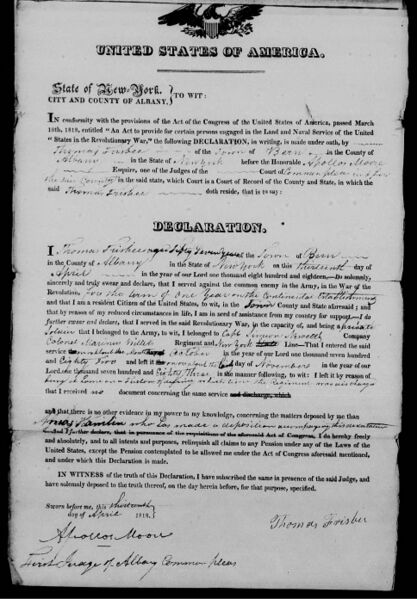 UNITED STATES OF AMERICA.
State of New-York.
CITY AND COUNTY OF ALBANY, } TO WIT:
IN conformity with the provisions of the Act of the Congress of the United States of America, passed March
18th, 1818, entitled "An Act to provide for certain persons engaged in the Land and Naval Service of the United
"States in the Revolutionary War," the following DECLARATION, in writing, is made under oath, by
Thomas Frisbee of the Town of Bern in the County of
Albany in the State of New York before the Honorable Apollos Moore
Esquire, one of the Judges of the Court of Common pleas in & for
the said County in the said state, which Court is a Court of Record of the County and State, in which the said
Thomas Frisbee doth reside, that is to say:
DECLARATION.
I Thomas Frisbee aged fifty seven years of the Town of Bern
in the County of Albany in the State of New York on this thirteenth day of
April in the year of our Lord one thousand eight hundred and eighteen—Do solemnly,
sincerely and truly swear and declare, that I served against the common enemy in the Army, in the War of the
Revolution, For the term of one Year on the Continental Establishment
and that I am a resident Citizen of the United States, to wit, in the Town County and State aforesaid; and
that by reason of my reduced circumstances in life, I am in need of assistance from my country for support—I do
further swear and declare, that I served in the said Revolutionary War, in the capacity of, and being a private
Soldier that I belonged to the Army, to wit, I belonged to Capt Company
Colonel Marinus Willet Regiment and New York State Line—That I entered the said
service October in the year of our Lord one thousand seven hundred
and Eighty Two and left it on or about the November in the year of our
Lord one thousand seven hundred and Eighty Three in the manner following, to wit: I left it by reason of
the Regiment was discharged
that I received no document concerning the same service and discharge, which
and that there is no other evidence in my power to my knowledge, concerning the matters deposed by me than
who has made a deposition accompanying this declaration
—And I further declare, that in consequence of the requisitions of the aforesaid Act of Congress, I do hereby freely
and absolutely, and to all intents and purposes, relinquish all claims to any Pension under any of the Laws of the
United States, except the Pension contemplated to be allowed me under the Act of Congress aforesaid mentioned,
and under which this Declaration is made.
IN WITNESS of the truth of this Declaration, I have subscribed the same in presence of the said Judge, and
have solemnly deposed to the truth thereof, on the day herein before, for that purpose, specified.
Sworn before me, this thirteenth
day of April 1818.
Thomas Frisbee
Apollos Moore
First Judge of Albany Common pleas